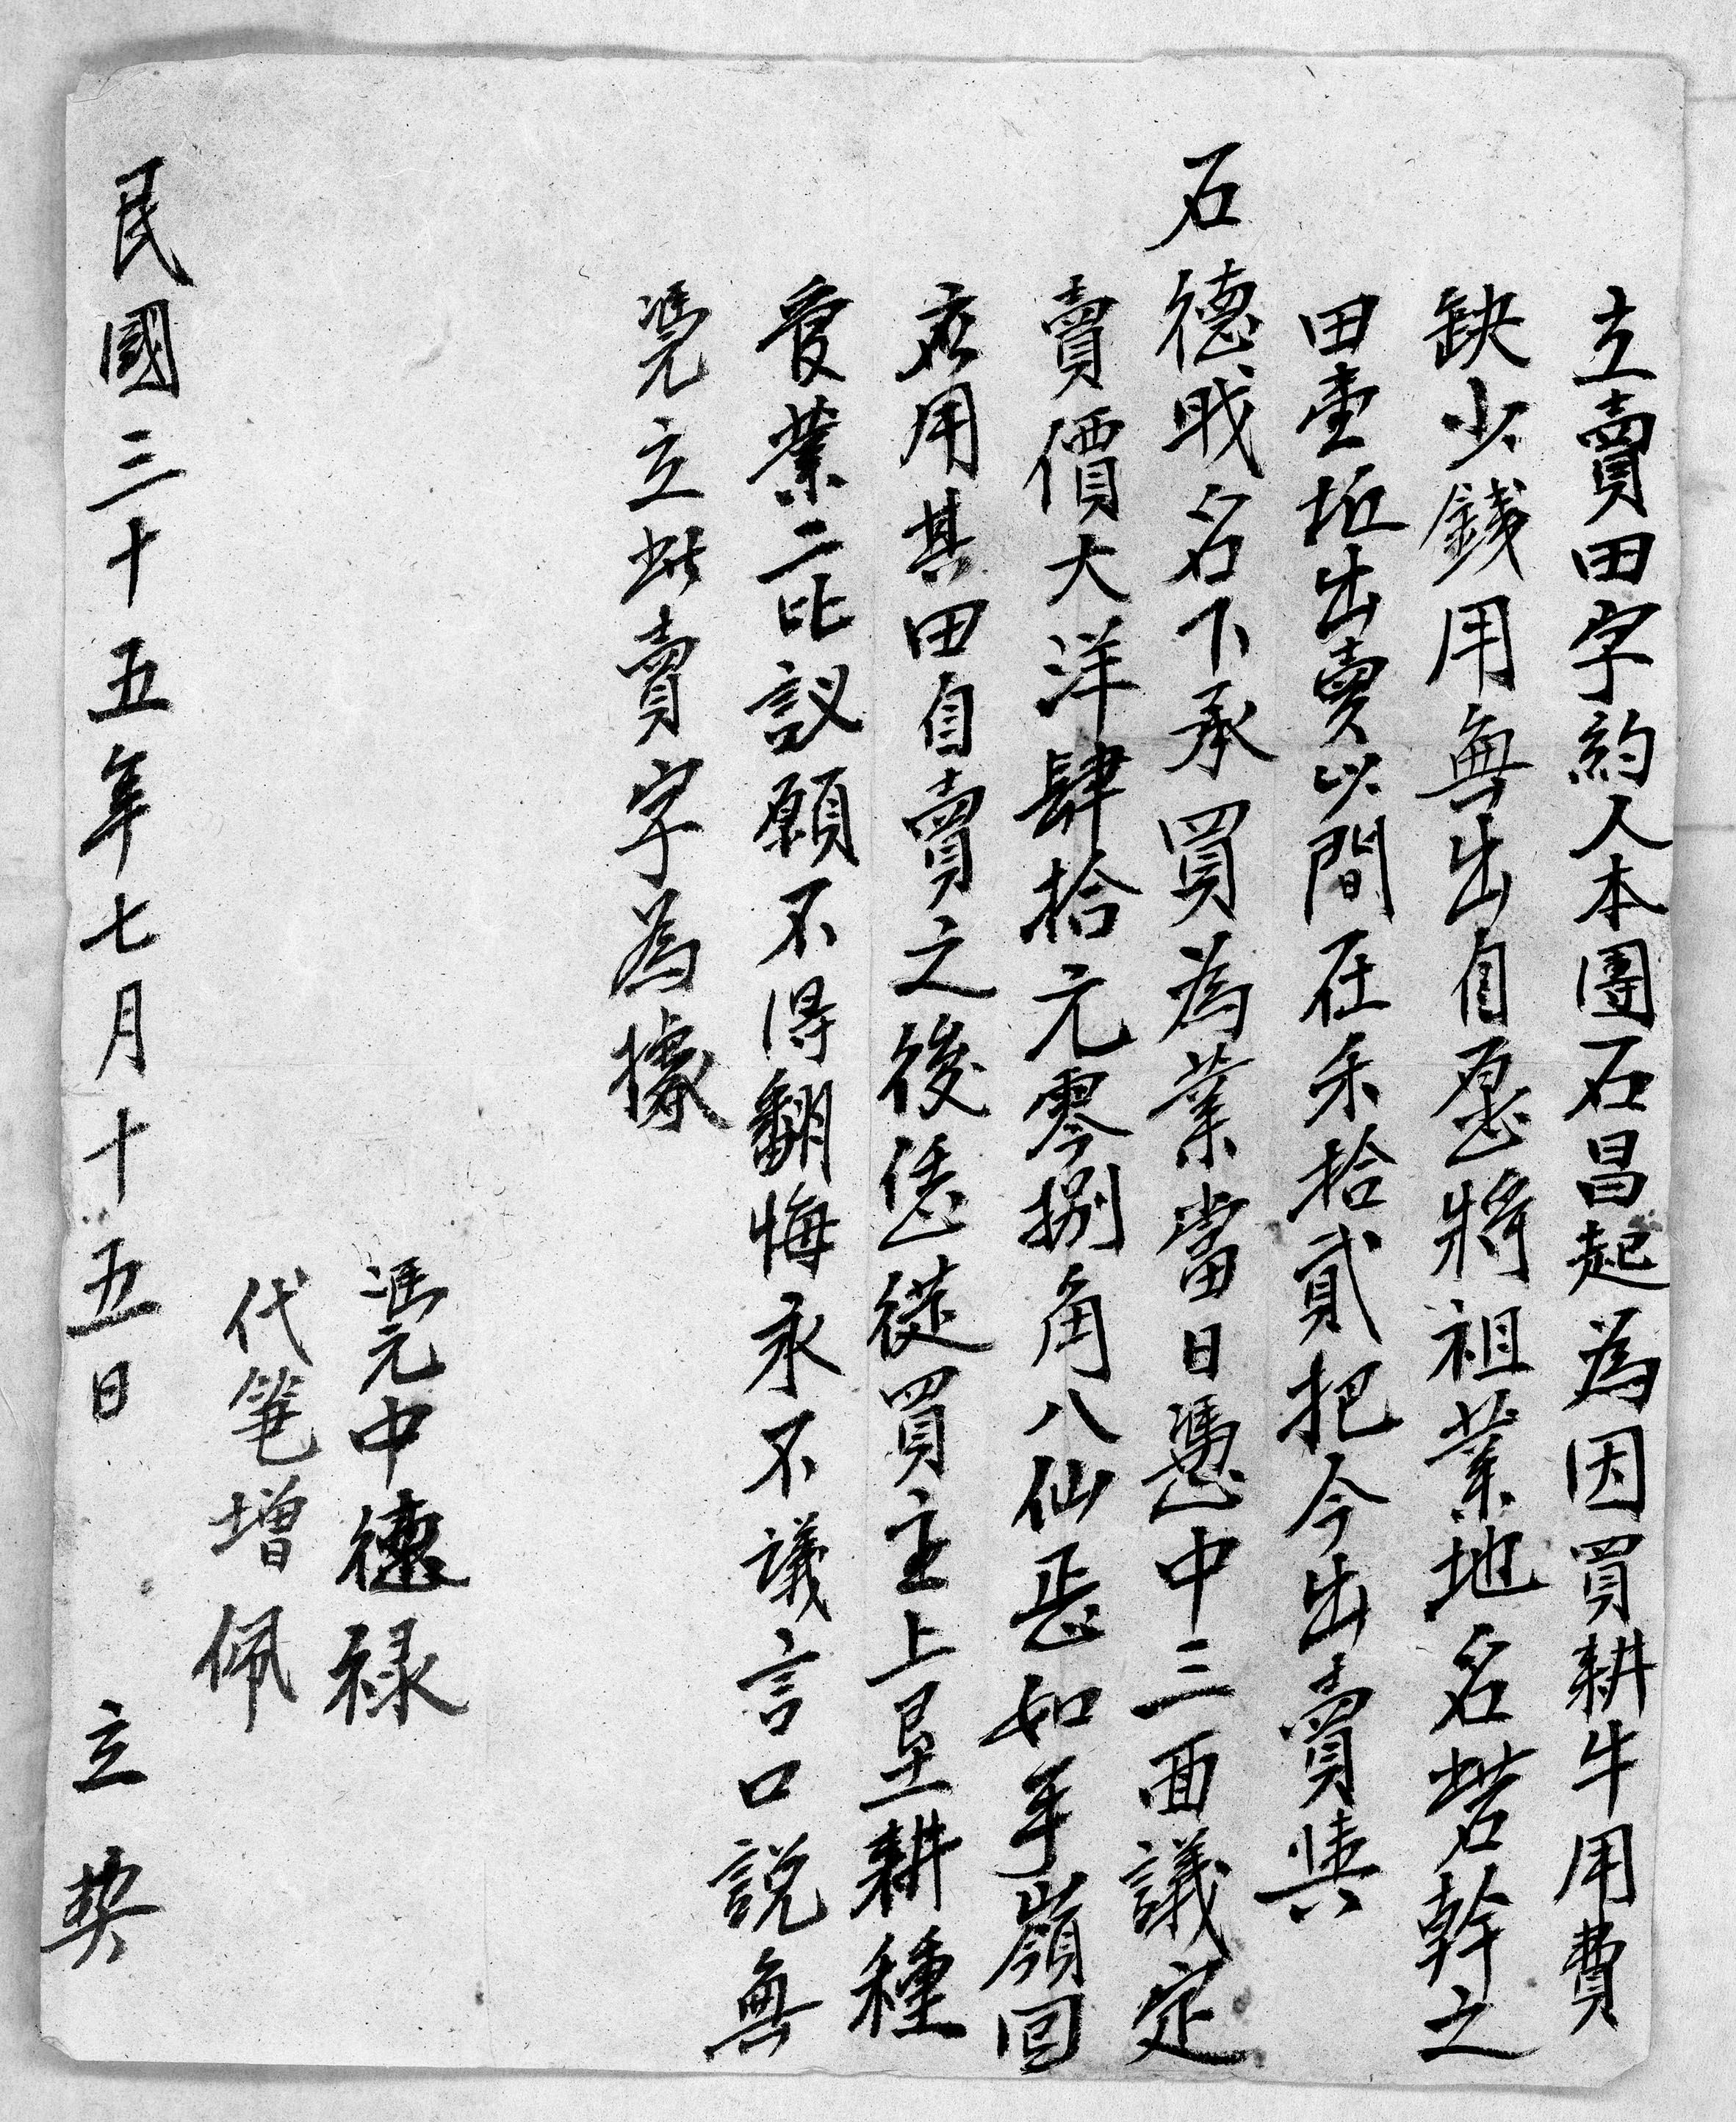 立賣田字約人本團石昌起為因買耕牛用費
缺少錢用無出自愿將祖業地名塔幹之
田壹坵出賣以間在禾拾貳把今出賣與
石德戝名下承買為業當日憑中三面議定
賣價大洋肆拾元零捌角八仙㤙如手嶺囬
家用其田自賣之後恁從買主上垦耕種
管業二比議願不得翻悔承不議言口說無
凴立此賣字為據
凴中德禄
代笔增佩
民國三十五年七月十五日 立 契